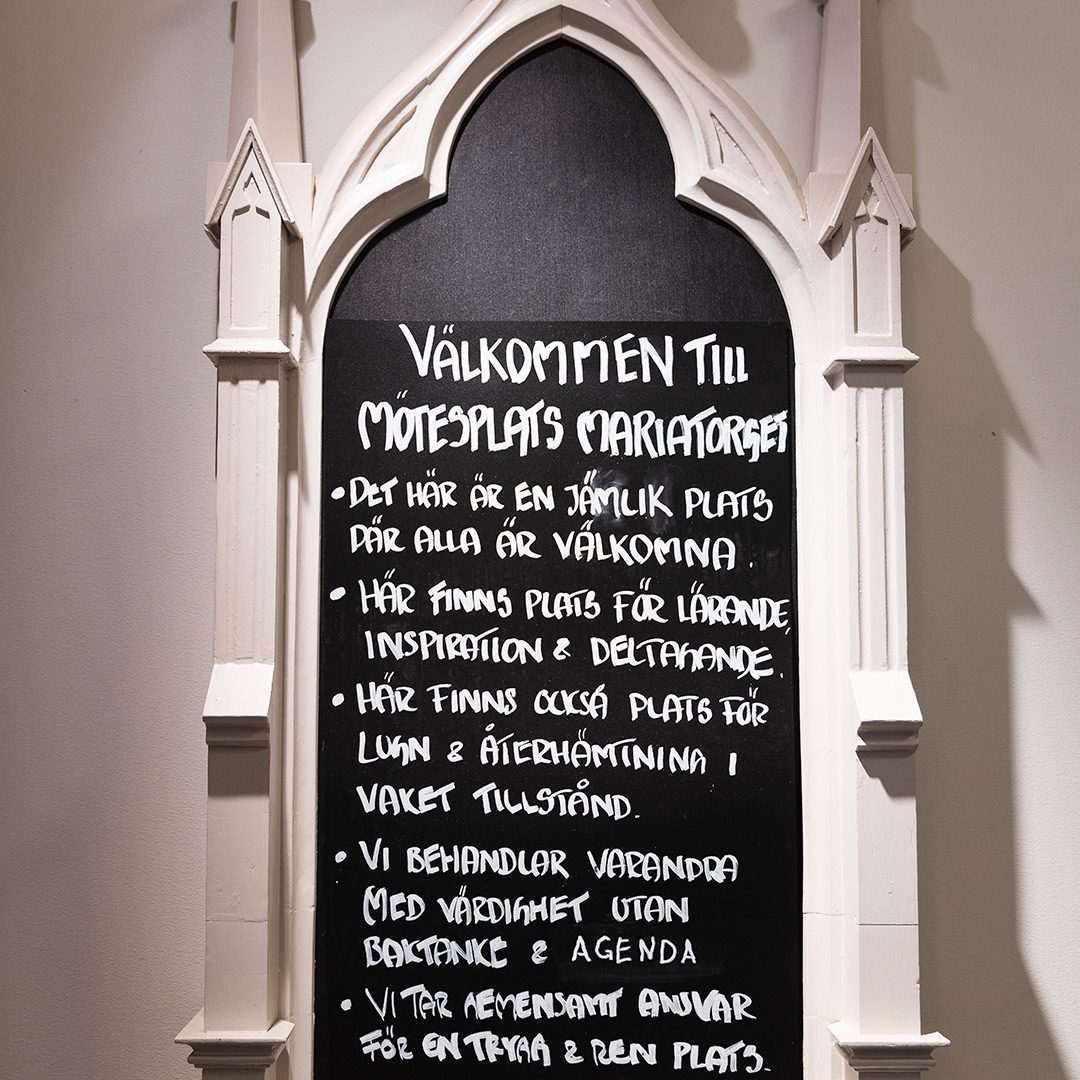 VÄLKOMMEN TILL
MÖTESPLATS MARIATORGET
• DET HÄR ÄR EN JÄMLIK PLATS
DÄR ALLA ÄR VÄLKOMNA.
• HÄR FINNS PLATS FÖR LÄRANDE,
INSPIRATION & DELTAGANDE.
• HÄR FINNS OCKSÅ PLATS FÖR
LUGN & ÅTERHÄMTNING I
VAKET TILLSTÅND.
• VI BEHANDLAR VARANDRA
MED VÄRDIGHET UTAN
BAKTANKE & AGENDA
• VI TAR GEMENSAMT ANSVAR
FÖR EN TRYGG & REN PLATS.